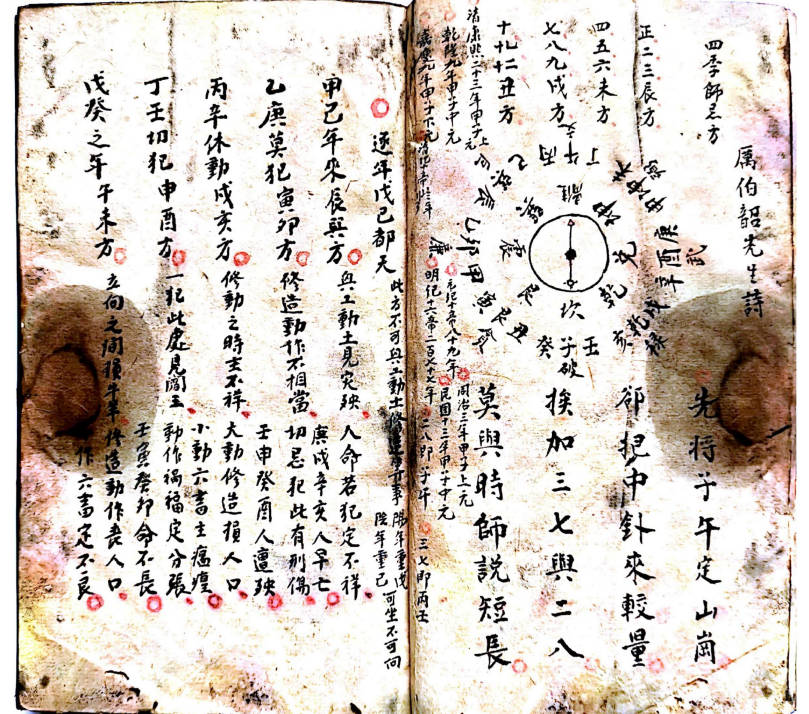 厲伯韶先生詩
先将子午定山崗
卻把中針來較量
挨加三七與二八
莫與時師說短長
四季師忌方
正二三辰方
四五六未方
七八九戌方
十十一十二丑方
清康熙二十三年甲子上元
乾隆九年甲子中元
嘉慶九年甲子下元
明紀十六帝二百七十七年
同治三年甲子上元
民國十三年甲子中元
二八即子午
三七即丙壬
離
丁
午
丙
巳
巽
辰
乙
卯
甲
震
寅
艮
丑
癸
子
坎
壬
亥
乾
戌
辛
酉
庚
兌
坤
破
武
逐年戊己都天
此方不可興工動土修造等事
陽年重戊
陰年重己
可坐不可向
甲己年來辰巽方
興工動土見災殃
人命若犯定不祥
乙庚莫犯寅卯方
修造動作不相當
庚戌辛亥人早亡
切忌犯此有刑傷
丙辛休動戌亥方
修動之時主不祥
壬申癸酉人遭殃
大動修造損人口
丁壬切犯申酉方
一犯此處見閻王
小動六畜主瘟瘟
動作禍福定分張
戊癸之年午未方
立向之間損牛羊
壬寅癸卯命不長
修造動作喪人口
作六畜定不良